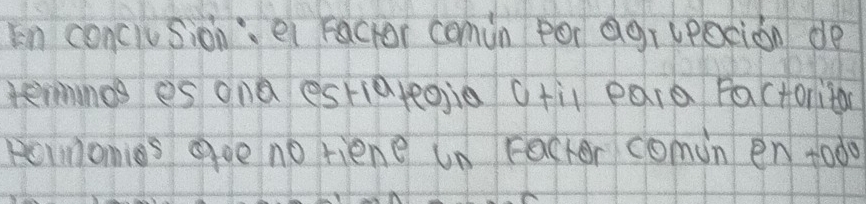 En conclusión: el Factor común por agrupación de
terminos es una estrategia útil para Factorizar
Polinomios que no tiene un Factor común en todo